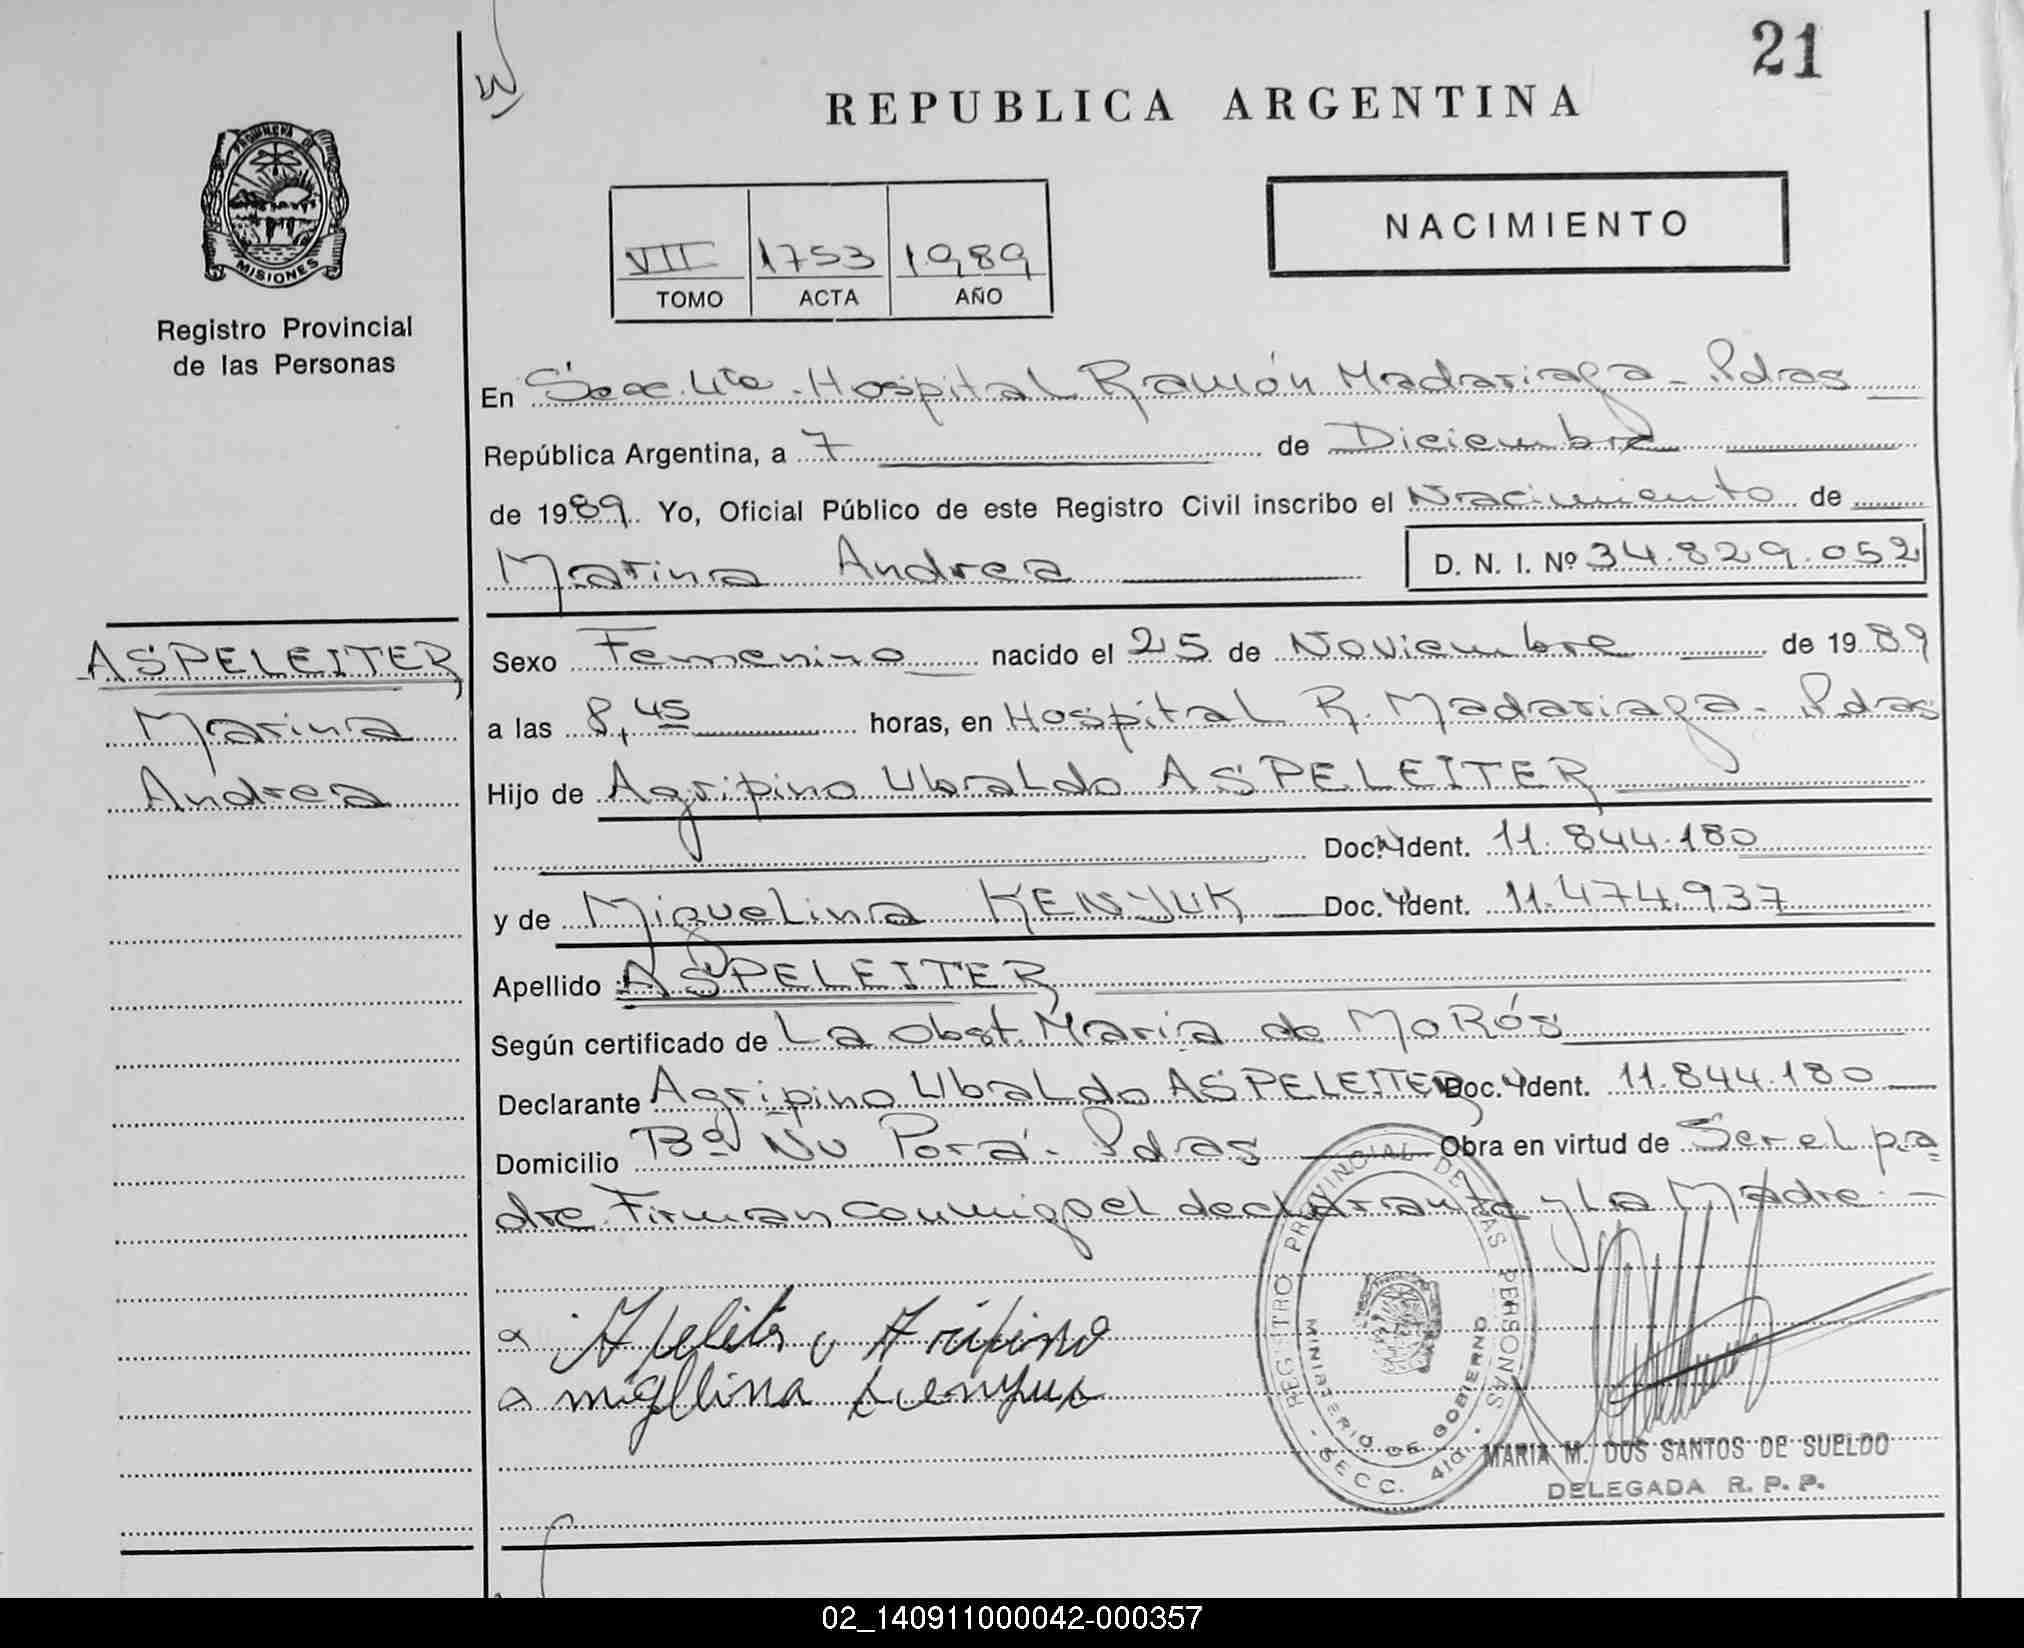 21
REPUBLICA ARGENTINA
PROVINCIA DE
MISIONES
Registro Provincial
de las Personas
NACIMIENTO
VII 1753 1989
TOMO ACTA AÑO
En Secc. 4ta - Hospital Ramón Madariaga - Pdas
República Argentina, a 7 de Diciembre
de 1989. Yo, Oficial Público de este Registro Civil inscribo el Nacimiento de
Marina Andrea D. N. I. Nº 34.829.052
ASPELEITER
Marina
Andrea
Sexo Femenino nacido el 25 de Noviembre de 1989
a las 8,45 horas, en Hospital R. Madariaga - Pdas
Hijo de Agripino Ubaldo ASPELEITER
Doc. Ident. 11.844.180
y de Miguelina KENYUK Doc. Ident. 11.474.937
Apellido ASPELEITER
Según certificado de La Obst. María de MoRós
Declarante Agripino Ubaldo ASPELEITER Doc. Ident. 11.844.180
Domicilio Bº Ñu Porá - Pdas Obra en virtud de Ser el pa
dre. Firman conmigo el declarante y La Madre. -
REGISTRO PROVINCIAL DE LAS PERSONAS
MINISTERIO DE GOBIERNO
- SECC. 4ta. -
MARIA M. DOS SANTOS DE SUELDO
DELEGADA R. P. P.
02_140911000042-000357